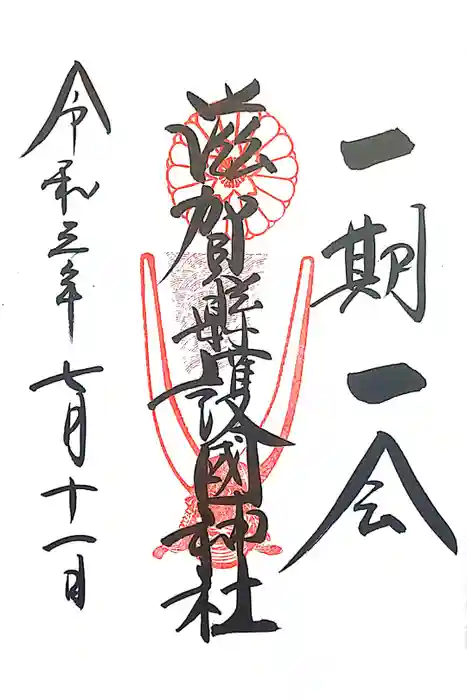 一期一会
滋賀縣護國神社
令和三年七月十一日